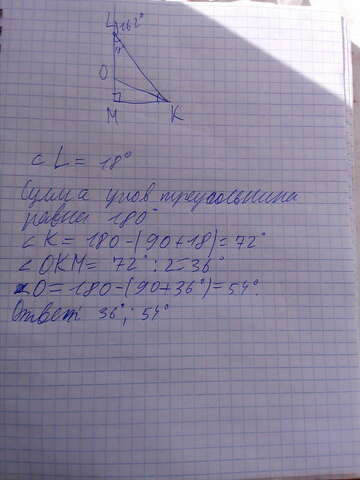 L 162°
18
O
M K
∠ L = 18°
Сумма углов треугольника
равна 180°
∠ K = 180-(90+18)=72°
∠ OKM = 72° : 2=36°
∠O = 180-(90+36°)=54°.
Ответ 36°; 54°